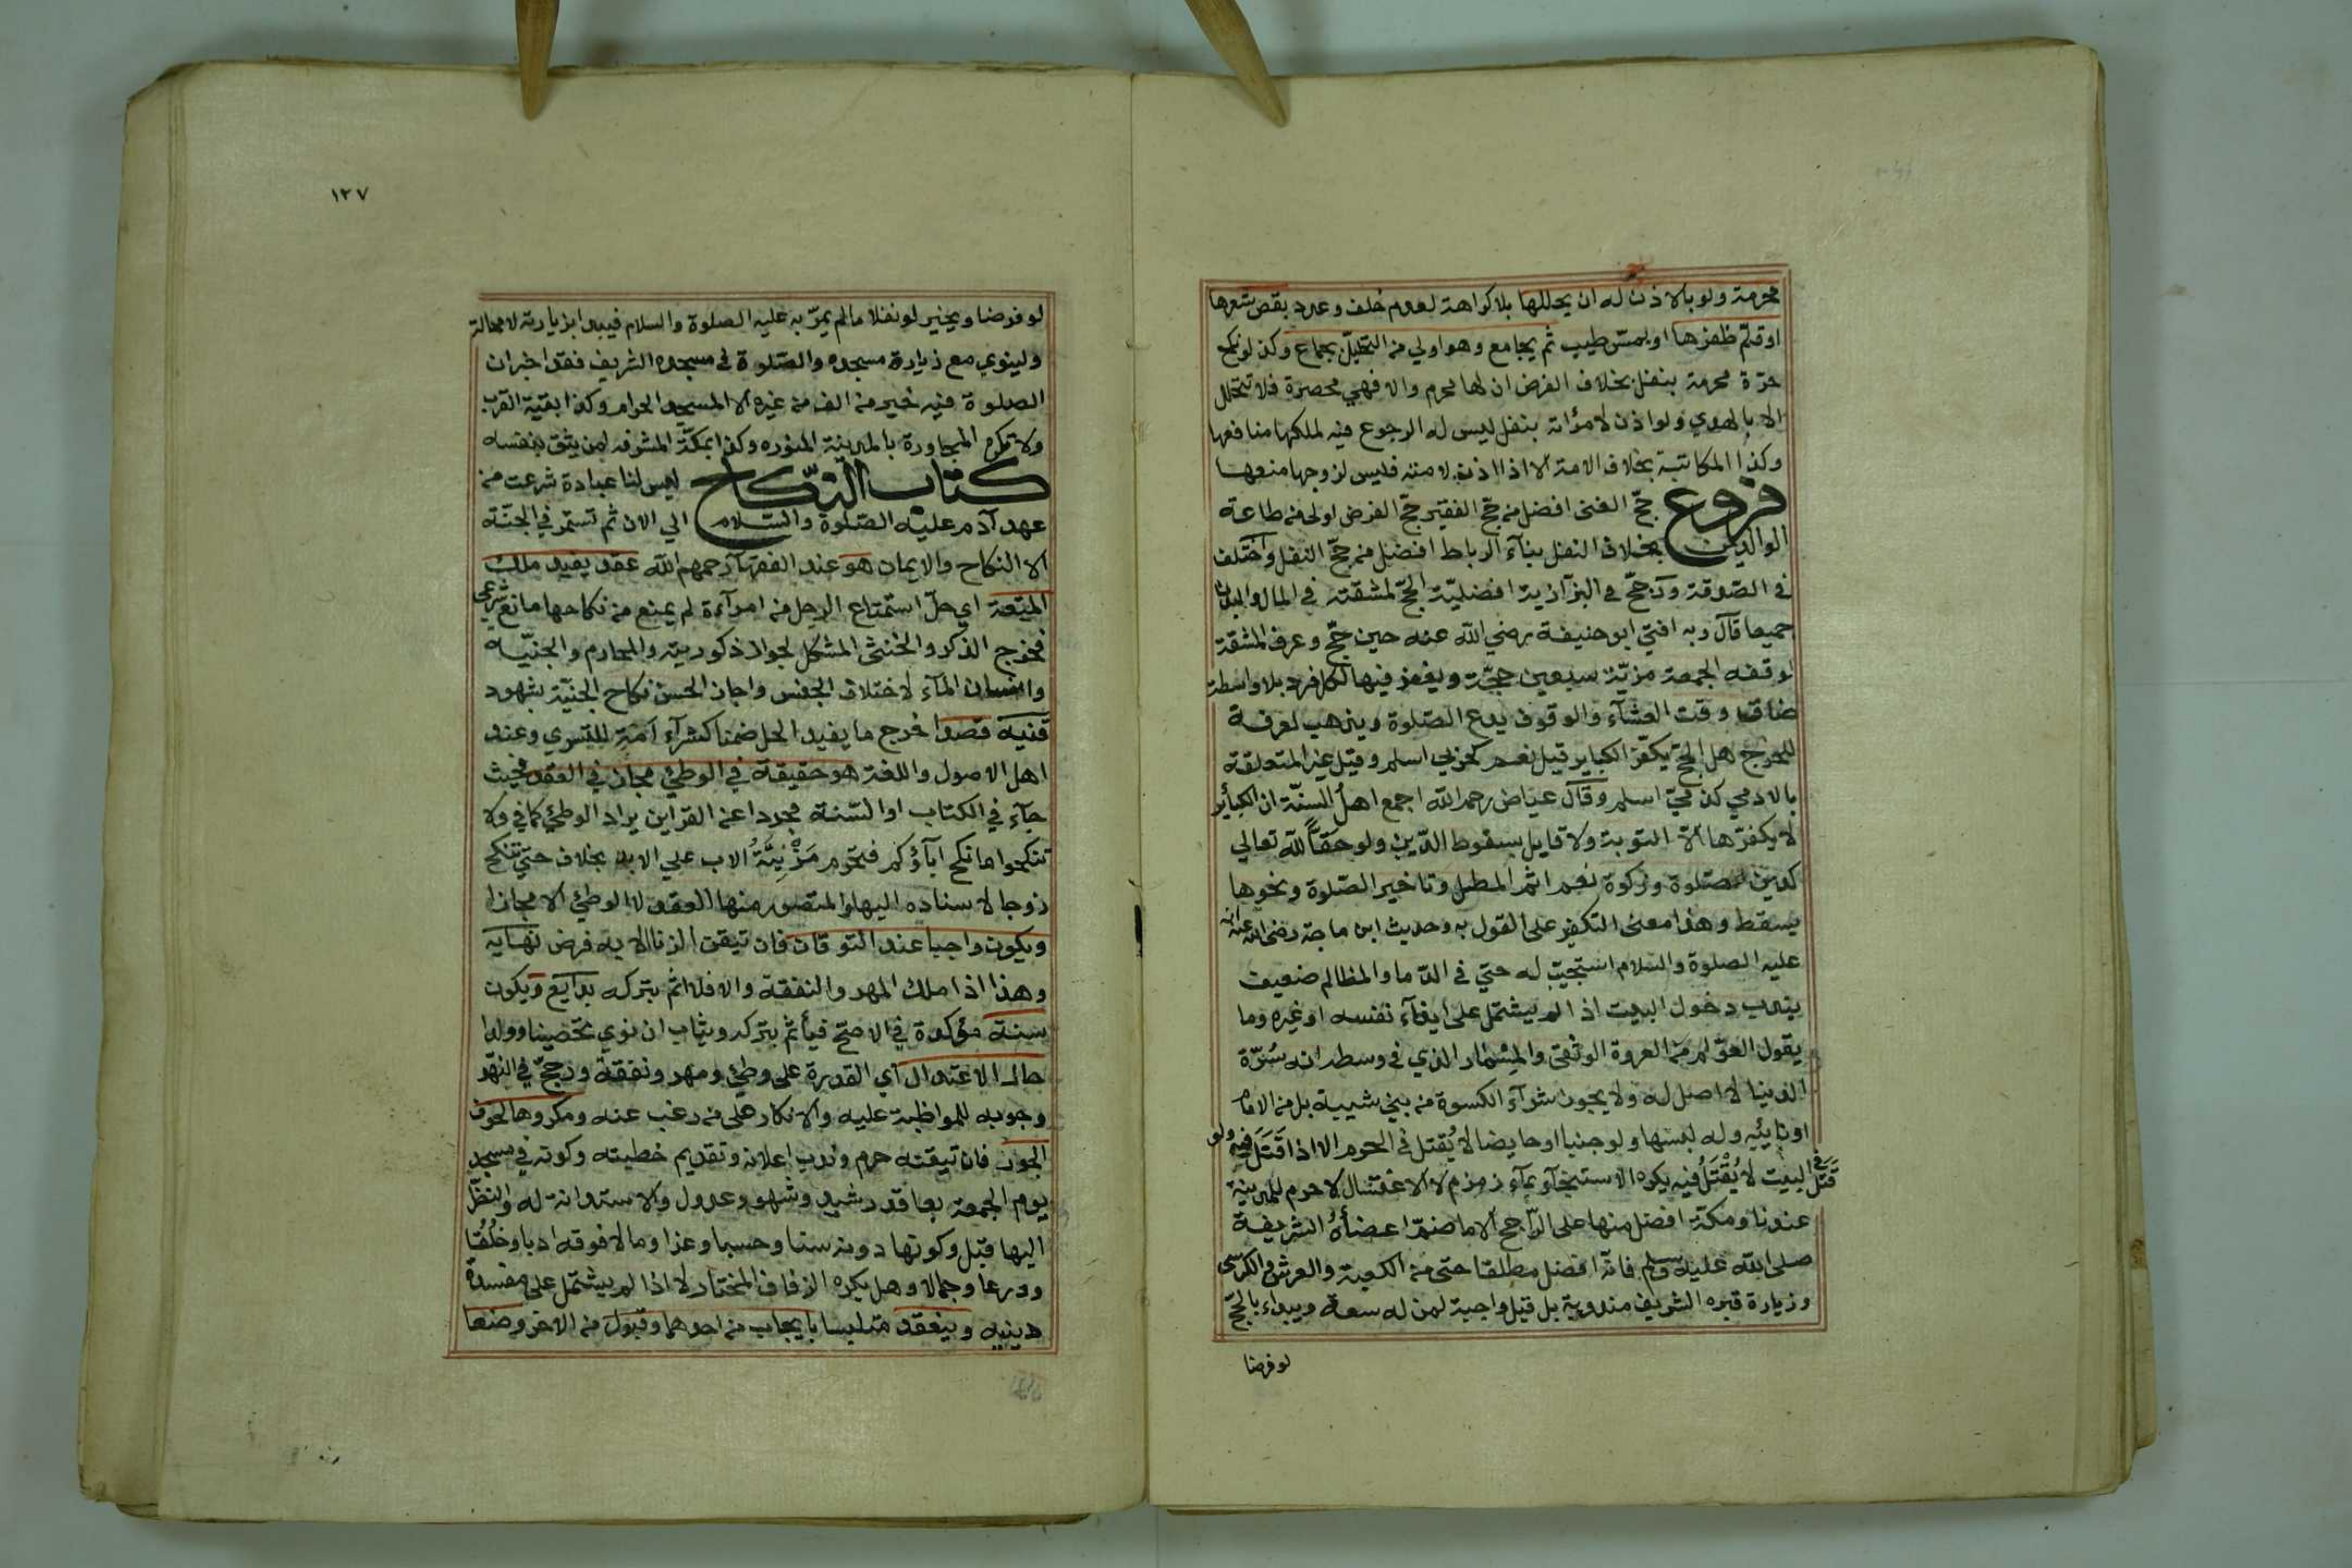 محرمة ولو بالاذن له ان يحللها بلا كراهة لعدم خلف وعده بقص شعرها
او قلم ظفرها او بمس طيب ثم يجامع وهو اولي من التحليل بجماع وكذا لو نكح
حرة محرمة بنفل بخلاف الفرض ان لها محرم والا فهي محصرة فلا تتحلل
الا بالهدي ولو اذن لامرأته بنفل ليس له الرجوع فيه لملكها منافعها
وكذا المكاتبة بخلاف الامة الا اذا اذن لامته فليس لزوجها منعها
فروع حج الغني افضل من حج الفقير حج الفرض اولى من طاعة
الوالدين بخلاف النفل بنآء الرباط افضل من حج النفل واختلف
في الصدقة ورجح في البزازية افضلية الحج لمشقته في المال والبدن
جميعا قال وبه افتي ابو حنيفة رضي الله عنه حين حج وعرف المشقة
لوقفة الجمعة مزية سبعين حجة ويغفر فيها لكل فرد بلا واسطة
ضاق وقت العشآء والوقوف يدع الصلوة ويذهب لعرفة
للحرج هل الحج يكفر الكباير قيل نعم كحربي اسلم وقيل غير المتعلقة
بالادمي كذمي اسلم وقال عياض رحمه الله اجمع اهل السنة ان الكبائر
لا يكفرها الا التوبة ولا قايل بسقوط الدين ولو حقا لله تعالي
كدين صلوة وزكوة نعم اثم المطل وتاخير الصلوة ونحوها
يسقط وهذا معنى التكفير على القول به وحديث ابن ماجة رضي الله عنه انه
عليه الصلوة والسلام استجيب له حتي في الدما والمظالم ضعيف
يندب دخول البيت اذا لم يشتمل على ايذآء نفسه او غيره وما
يقول العوام من العروة الوثقى والمسمار الذي في وسطه انه سرة
الدينا لا اصل له ولا يجوز شرآء الكسوة من بني شيبة بل من الامام
او نايبه وله لبسها ولو جنبا او حايضا لا يقتل في الحرم الا اذا قتل فيه ولو
قتل في البيت لا يقتل فيه يكره الاستنجآء بمآء زمزم لا الاغتسال لا حرم للمدينة
عندنا ومكة افضل منها على الراجح الا ما ضم اعضآءه الشريفة
صلى الله عليه وسلم فانه افضل مطلقا حتى من الكعبة والعرش والكرسى
وزيارة قبره الشريف مندوبة بل قيل واجبة لمن له سعة ويبداء بالحج
لو فرضا
١٢٧
لو فرضا ويخير لو نفلا ما لم يمر به عليه الصلوة والسلام فيبدا بزيارته لا محالة
ولينوي مع زيارة مسجده والصلوة في مسجده الشريف فقد اخبر ان
الصلوة فيه خير من الف من غيره الا المسجد الحرام وكذا بقية القرب
ولا تكره المجاورة بالمدينة المنوره وكذا بمكة المشرفه لمن يثق بنفسه
كتاب النكاح ليس لنا عبادة شرعت من
عهد آدم عليه الصلوة والسلام الي الان ثم تستمر في الجنة
الا النكاح والايمان هو عند الفقهآء رحمهم الله عقد يفيد ملك
المتعة اي حل استمتاع الرجل من امرآءة لم يمنع من نكاحها مانع شرعي
فخرج الذكر والخنثى المشكل لجواز ذكوريته والمحارم والجنيه
وانسان المآء لاختلاف الجنس واجاز الحسن نكاح الجنية بشهود
قنيه قصدا خرج ما يفيد الحل ضمنا كشرآء امة للتسري وعند
اهل الاصول واللغة هو حقيقة في الوطئ مجاز في العقد فحيث
جآء في الكتاب او السنة مجردا عن القراين يراد الوطئ كما في ولا
تنكحوا ما نكح آبآؤكم فتحرم مزنية الاب علي الابن بخلاف حتي تنكح
زوجا لاسناده اليها والمتصور منها العقد لا الوطئ الا مجازا
ويكون واجبا عند التوقان فان تيقن الزنا الا به فرض نهايه
وهذا اذا ملك المهر والنفقة والا فلا اثم بتركه بدايع ويكون
سنة مؤكدة في الاصح فيأثم بتركه ويثاب ان نوي تحصينا وولدا
حالة الاعتدال اي القدرة على وطئ ومهر ونفقة ورجح في النهر
وجوبه للمواظبة عليه والانكار على من رغب عنه ومكروها لخوف
الجور فان تيقنه حرم وندب اعلانه وتقديم خطبته وكونه في مسجد
يوم الجمعة بعاقد رشيد وشهود عدول والاستدانة له والنظر
اليها قبل وكونها دونه سنا وحسبا وعزا ومالا فوقه ادبا وخلقا
وورعا وجمالا وهل يكره الزفاف المختار لا اذا لم يشتمل على مفسدة
دينيه وينعقد متلبسا بايجاب من احدهما وقبول من الاخر وضعا